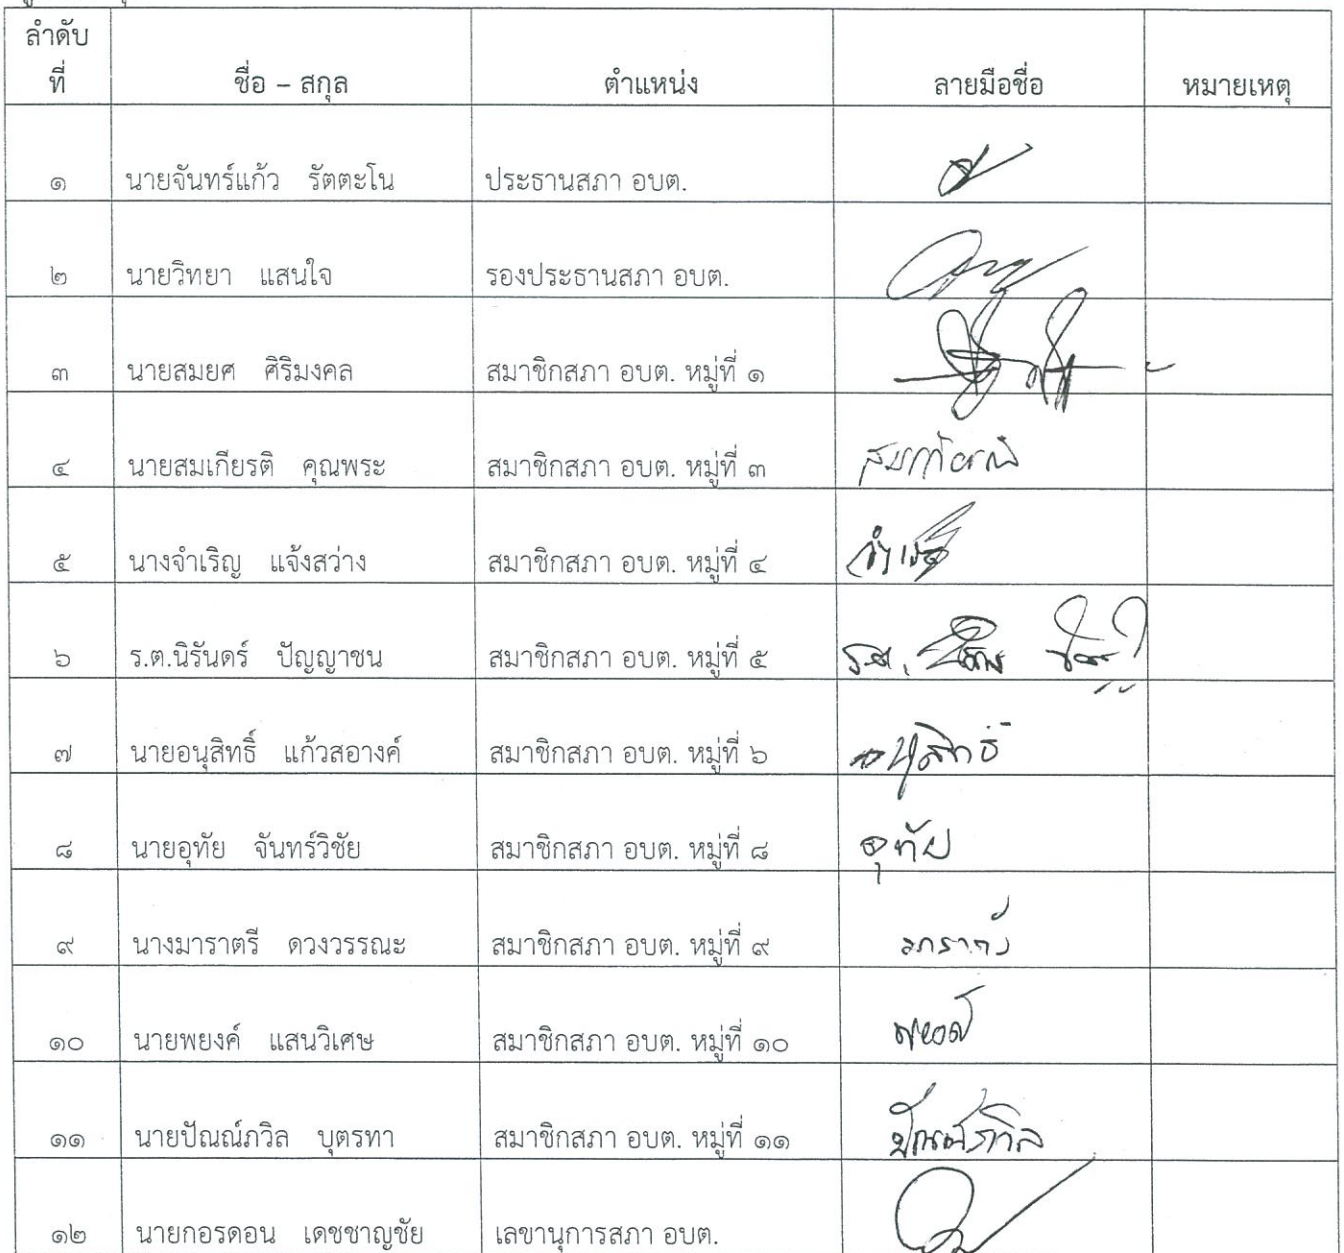 ลำดับ
ที่ ชื่อ – สกุล ตำแหน่ง ลายมือชื่อ หมายเหตุ
๑ นายจันทร์แก้ว รัตตะโน ประธานสภา อบต.
๒ นายวิทยา แสนใจ รองประธานสภา อบต.
๓ นายสมยศ ศิริมงคล สมาชิกสภา อบต. หมู่ที่ ๑
๔ นายสมเกียรติ คุณพระ สมาชิกสภา อบต. หมู่ที่ ๓
๕ นางจำเริญ แจ้งสว่าง สมาชิกสภา อบต. หมู่ที่ ๔
๖ ร.ต.นิรันดร์ ปัญญาชน สมาชิกสภา อบต. หมู่ที่ ๕
๗ นายอนุสิทธิ์ แก้วสอางค์ สมาชิกสภา อบต. หมู่ที่ ๖
๘ นายอุทัย จันทร์วิชัย สมาชิกสภา อบต. หมู่ที่ ๘ อุทัย
๙ นางมาราตรี ดวงวรรณะ สมาชิกสภา อบต. หมู่ที่ ๙
๑๐ นายพยงค์ แสนวิเศษ สมาชิกสภา อบต. หมู่ที่ ๑๐
๑๑ นายปัณณ์ภวิล บุตรทา สมาชิกสภา อบต. หมู่ที่ ๑๑
๑๒ นายกอรดอน เดชชาญชัย เลขานุการสภา อบต.